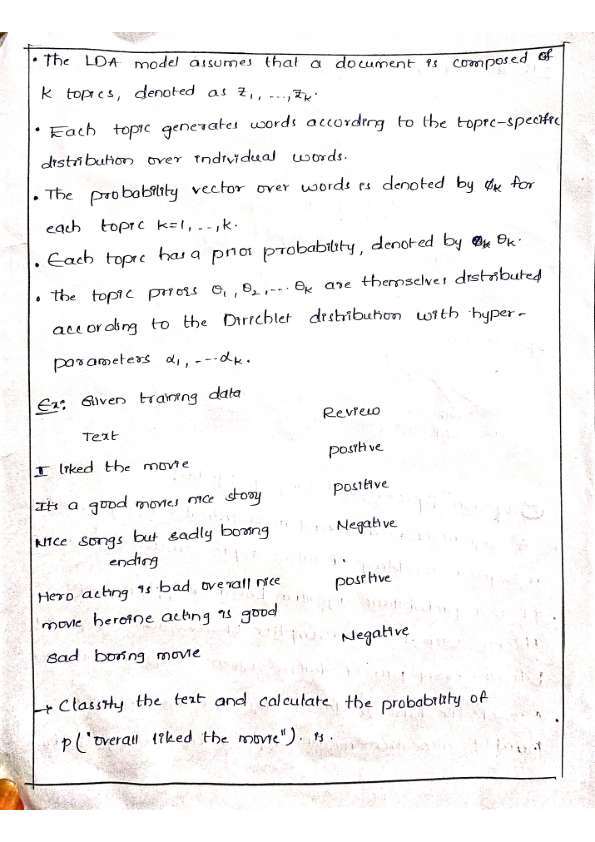 • The LDA model assumes that a document is composed of
K topics, denoted as z₁, ..., zₖ.
• Each topic generates words according to the topic-specific
distribution over individual words.
• The probability vector over words is denoted by øₖ for
each topic k=1, ..., k.
• Each topic has a prior probability, denoted by θₖ.
• The topic priors θ₁, θ₂, ... θₖ are themselves distributed
according to the Dirichlet distribution with hyper-
parameters α₁, ... αₖ.
Ex: Given training data
Text Review
I liked the movie positive
Its a good movies nice story positive
Nice songs but sadly boring Negative
ending
Hero acting is bad overall nice positive
movie heroine acting is good
Sad boring movie Negative
→ Classify the text and calculate the probability of
p("overall liked the movie"). is.